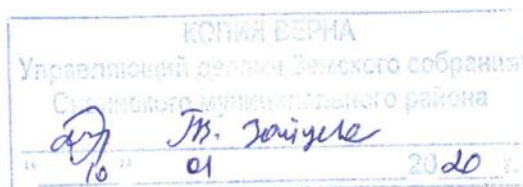 КОПИЯ ВЕРНА
Управляющий делами Земского собрания
муниципального района
Т.В. Зайцева
" 10 " 01 2020 г.